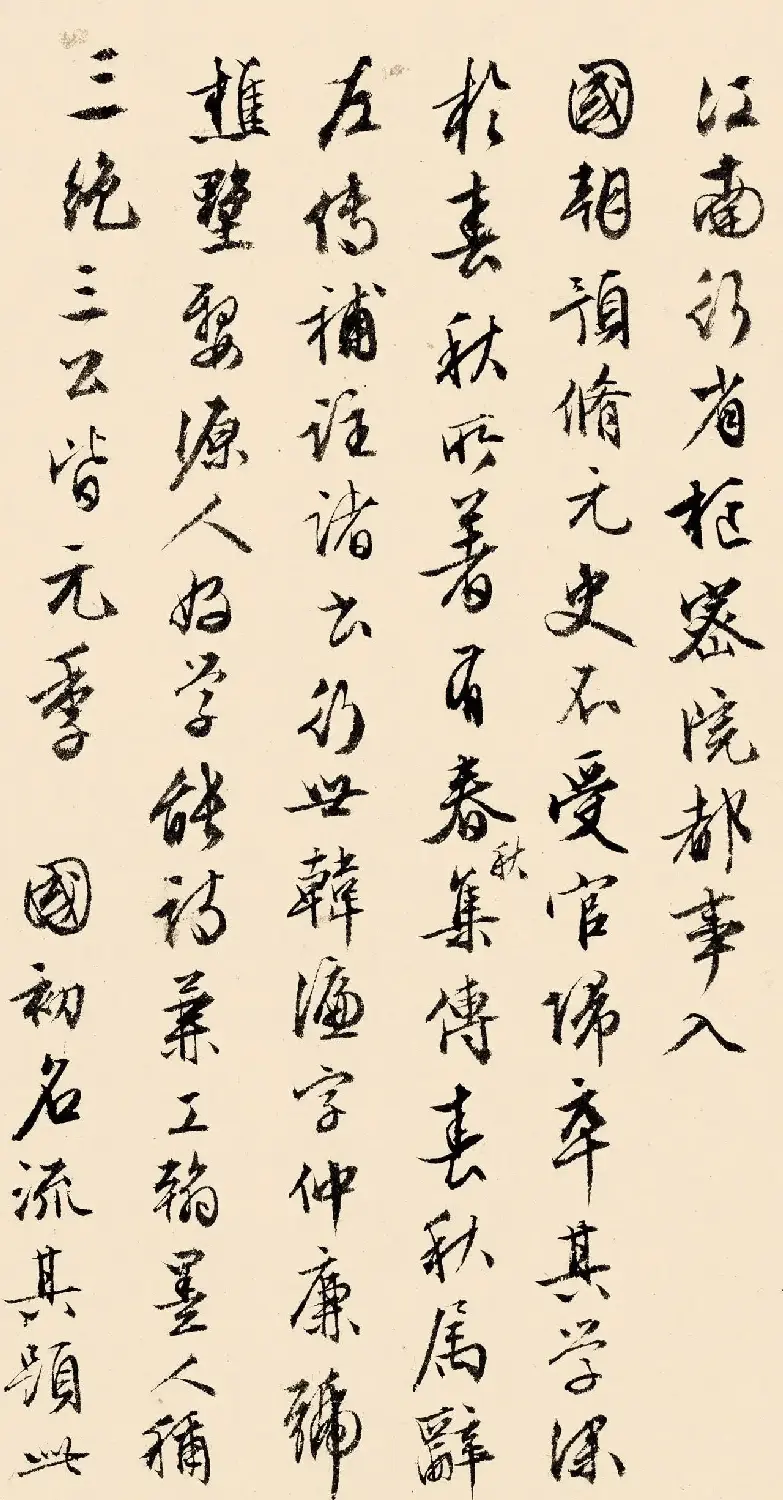 江南行省樞密院都事入
國朝預脩元史不受官歸卒其學深
於春秋所著有春秋集傳春秋属辭
左傳補註諸書行世韓濂字仲廉號
樵墅婺源人好学能詩兼工翰墨人稱
三絶三公皆元季 國初名流其題此